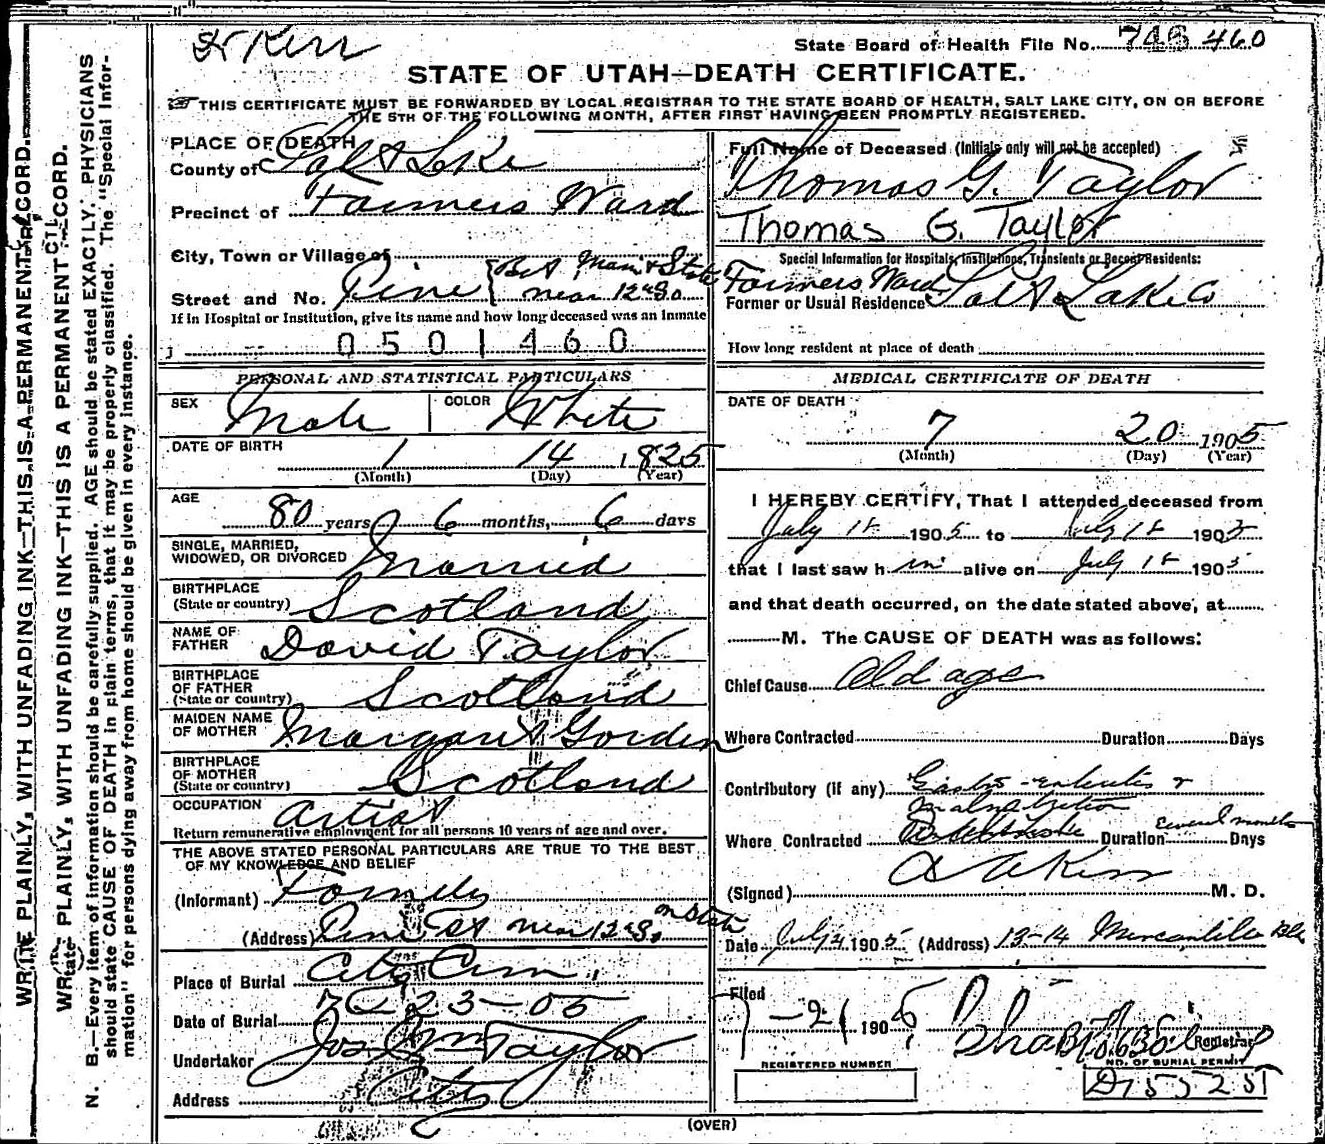 Dr Kerr
State Board of Health File No. 746 460
STATE OF UTAH—DEATH CERTIFICATE.
THIS CERTIFICATE MUST BE FORWARDED BY LOCAL REGISTRAR TO THE STATE BOARD OF HEALTH, SALT LAKE CITY, ON OR BEFORE
THE 5TH OF THE FOLLOWING MONTH, AFTER FIRST HAVING BEEN PROMPTLY REGISTERED.
WRITE PLAINLY, WITH UNFADING INK—THIS IS A PERMANENT RECORD.
PLAINLY, WITH UNFADING INK—THIS IS A PERMANENT RECORD.
N. B.—Every item of information should be carefully supplied. AGE should be stated EXACTLY. PHYSICIANS
should state CAUSE OF DEATH in plain terms, that it may be properly classified. The "Special Infor-
mation" for persons dying away from home should be given in every instance.
PLACE OF DEATH
County of Salt Lake
Precinct of Farmers Ward
City, Town or Village of
Street and No. Pine Bet Main & State near 12th So
If in Hospital or Institution, give its name and how long deceased was an inmate
0501460
PERSONAL AND STATISTICAL PARTICULARS
SEX Male COLOR White
DATE OF BIRTH 1 14 1825
(Month) (Day) (Year)
AGE 80 years 6 months, 6 days
SINGLE, MARRIED,
WIDOWED, OR DIVORCED Married
BIRTHPLACE
(State or country) Scotland
NAME OF
FATHER David Taylor
BIRTHPLACE
OF FATHER
(State or country) Scotland
MAIDEN NAME
OF MOTHER Margaret Gorden
BIRTHPLACE
OF MOTHER
(State or country) Scotland
OCCUPATION Artist
Return remunerative employment for all persons 10 years of age and over.
THE ABOVE STATED PERSONAL PARTICULARS ARE TRUE TO THE BEST
OF MY KNOWLEDGE AND BELIEF
(Informant) Family
(Address) Pine St near 12th So on State
Place of Burial City Cem.
Date of Burial 7-23-05
Undertaker Jos Wm Taylor
Address City
Full Name of Deceased (Initials only will not be accepted)
Thomas G. Taylor
Thomas G. Taylor
Special Information for Hospitals, Institutions, Transients or Recent Residents:
Farmers Ward
Former or Usual Residence Salt Lake Co
How long resident at place of death
MEDICAL CERTIFICATE OF DEATH
DATE OF DEATH
7 20 1905
(Month) (Day) (Year)
I HEREBY CERTIFY, That I attended deceased from
July 18 1905 to July 18 1905
that I last saw him alive on July 18 1905
and that death occurred, on the date stated above, at
M. The CAUSE OF DEATH was as follows:
Chief Cause Old age
Where Contracted Duration Days
Contributory (if any) Gastro-enteritis &
malnutrition
Where Contracted Duration Several months Days
(Signed) M. D.
Date July 21 1905 (Address) 13-14 Mercantile Blk
Filed
7-21 1905 Registrar
NO. OF BURIAL PERMIT
REGISTERED NUMBER
D1552 ST
(OVER)